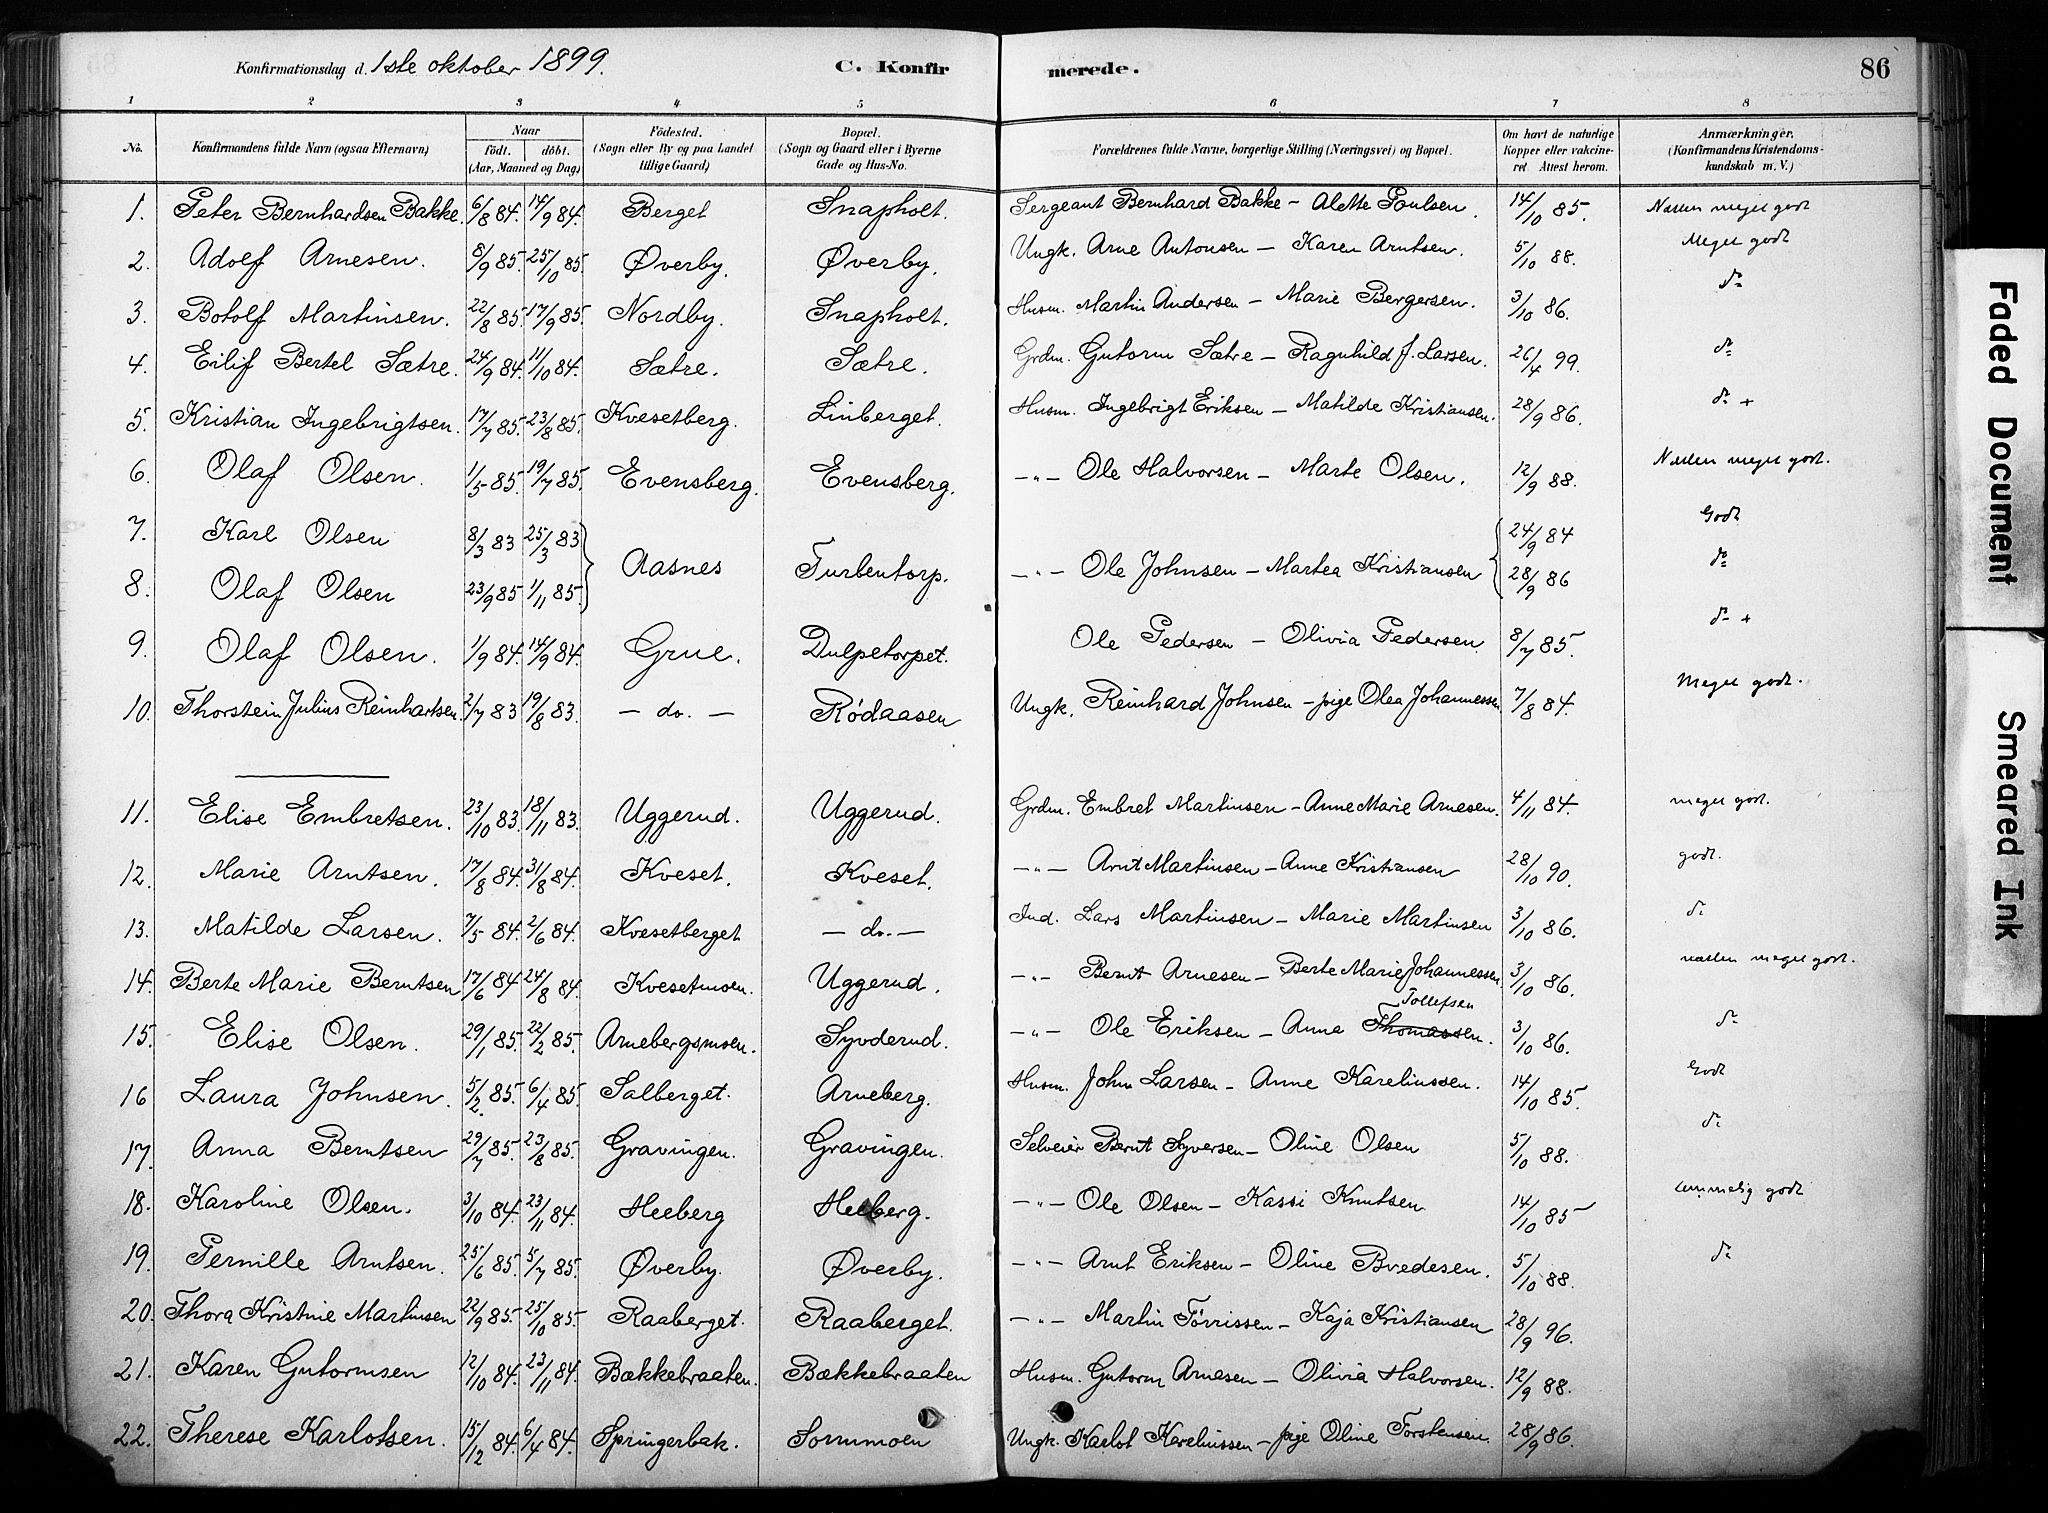 Konfirmationsdag d. 1ste oktober 1899. C. Konfir merede. 86
1 2 3 4 5 6 7 8
No. Konfirmandens fulde Navn (ogsaa Efternavn) Naar födt. döbt. (Aar, Maaned og Dag) Födested. (Sogn eller By og paa Landet tillige Gaard) Bopæl. (Sogn og Gaard eller i Byerne Gade og Hus-No. Forældrenes fulde Navne, borgerlige Stilling (Næringsvei) og Bopæl. Om havt de naturlige Kopper eller vakcineret Attest herom. Anmærkninger. (Konfirmandens Kristendomskundskab m. V.)
1. Peter Bernhardsen Bakke. 6/8 84. 14/9 84. Berget Snapholt. Sergeant Bernhard Bakke - Alette Poulsen. 14/10 85. Næsten meget godt
2. Adolf Arnesen. 8/9 85. 25/10 85. Øverby. Øverby. Ungk. Arne Antonsen - Karen Arntsen. 5/10 88. Meget godt
3. Botolf Martinsen. 22/8 85. 17/9 85. Nordby. Snapholt. Husm. Martin Andersen - Marie Bergersen. 3/10 86. do
4. Eilif Bertel Sætre. 24/9 84. 11/10 84. Sætre. Sætre. Grdm. Gutorm Sætre - Ragnhild J. Larsen. 26/4 99. do
5. Kristian Ingebrigtsen. 17/7 85. 23/8 85. Kvesetberg. Linberget. Husm. Ingebrigt Eriksen - Matilde Kristiansen. 28/9 86. do +
6. Olaf Olsen. 1/5 85. 19/7 85. Evensberg. Evensberg. -„- Ole Halvorsen - Marte Olsen. 12/9 88. Næsten meget godt.
7. Karl Olsen 8/3 83 25/3 83 24/9 84 Godt
Aasnes Turbentorp. -„- Ole Johnsen - Martea Kristiansen
8. Olaf Olsen 23/9 85 1/11 85. 28/9 86 do
9. Olaf Olsen. 1/9 84. 14/9 84. Grue. Dulpetorpet. Ole Pedersen - Olivia Pedersen 8/7 85. do +
10. Thorstein Julius Reinhartsen. 2/7 83 19/8 83. - do. - Rödaasen Ungk. Reinhard Johnsen - pige Olea Johannessen 7/8 84. Meget godt.
11. Elise Embretsen. 23/10 83. 18/11 83. Uggerud. Uggerud. Grdm. Embret Martinsen - Anne Marie Arnesen. 4/11 84. meget godt.
12. Marie Arntsen. 17/8 84. 31/8 84. Kveset. Kveset. -„- Arnt Martinsen - Anne Kristiansen 28/10 90. godt.
13. Matilde Larsen. 7/5 84. 2/6 84. Kvesetberget - do. - Ind. Lars Martinsen - Marie Martinsen 3/10 86. do
14. Berte Marie Berntsen 17/6 84 24/8 84. Kvesetmoen. Uggerud. -„- Bernt Arnesen - Berte Marie Johannessen 3/10 86. næsten meget godt.
Tollefsen
15. Elise Olsen. 29/1 85. 22/2 85. Arnebergsmoen. Syvderud. -„- Ole Eriksen - Anna Thomassen. 3/10 86. do
16 Laura Johnsen. 5/2. 85. 6/4 85. Salberget. Arneberg. Husm. John Larsen - Anne Kareliussen. 14/10 85. Godt
17. Anna Berntsen 29/7 85. 23/8 85. Gravingen. Gravingen. Selveier Bernt Syversen - Oline Olsen 5/10 88. do
18. Karoline Olsen. 3/10 84. 23/11 84. Heeberg Heeberg. -„- Ole Olsen - Kassi Knutsen 14/10 85 temmelig godt
19. Pernille Arntsen. 25/6 85. 5/7 85. Øverby. Øverby. -„- Arnt Eriksen - Oline Bredesen. 5/10 88. do
20. Thora Kristine Martinsen 22/9 85. 25/10 85. Raaberget. Raaberget. -„- Martin Törrissen - Kaja Kristiansen 28/9 96.
21. Karen Gutormsen 12/10 84. 23/11 84. Bækkebraaten. Bækkebraaten Husm. Gutorm Arnesen - Olivia Halvorsen. 12/9 88.
22. Therese Karlotsen. 15/12 84. 6/4 84. Springerbak. Sormmoen Ungk. Karlot Kareliussen - pige Oline Torstensen. 28/9 86.
Faded Document
Smeared Ink